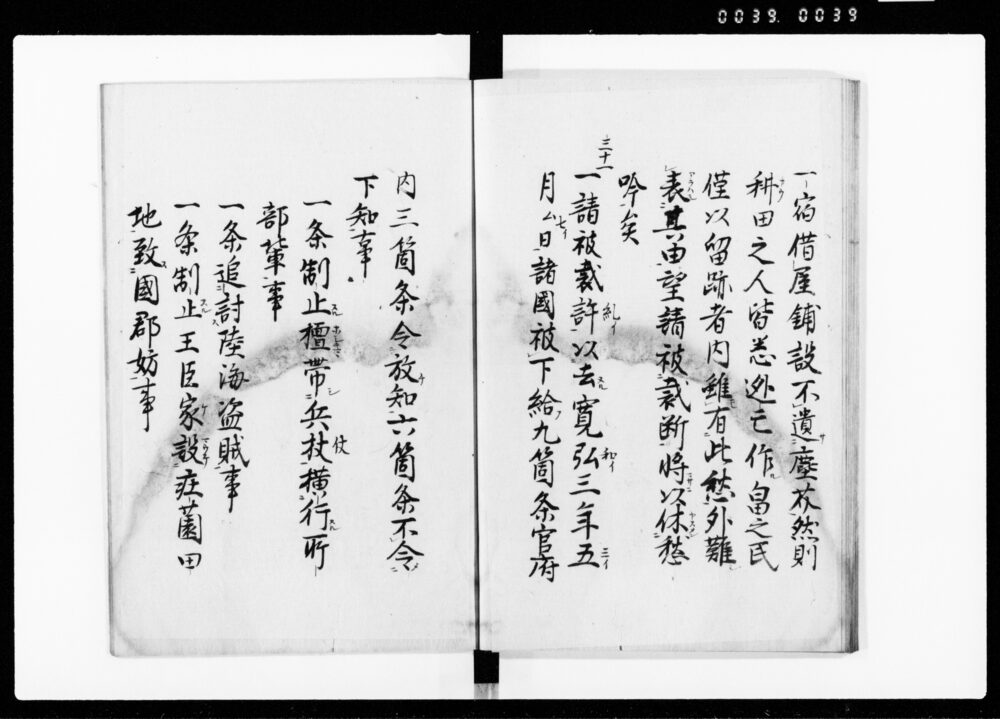 0039 0039
一宿借屋鋪設不遺塵芥然則
耕田之人皆悉逃亡作畠之民
僅以留跡者内雖有此愁外難
表其由望請被裁断将以休愁
吟矣
三十一
一請被裁許以去寛弘三年五
月ム日諸國被下給九箇条官府
内三箇条令放知六箇条不令
下知事
一条制止擅帯兵杖横行所
部輩事
一条追討陸海盗賊事
一条制止王臣家設庄薗田
地致國郡妨事